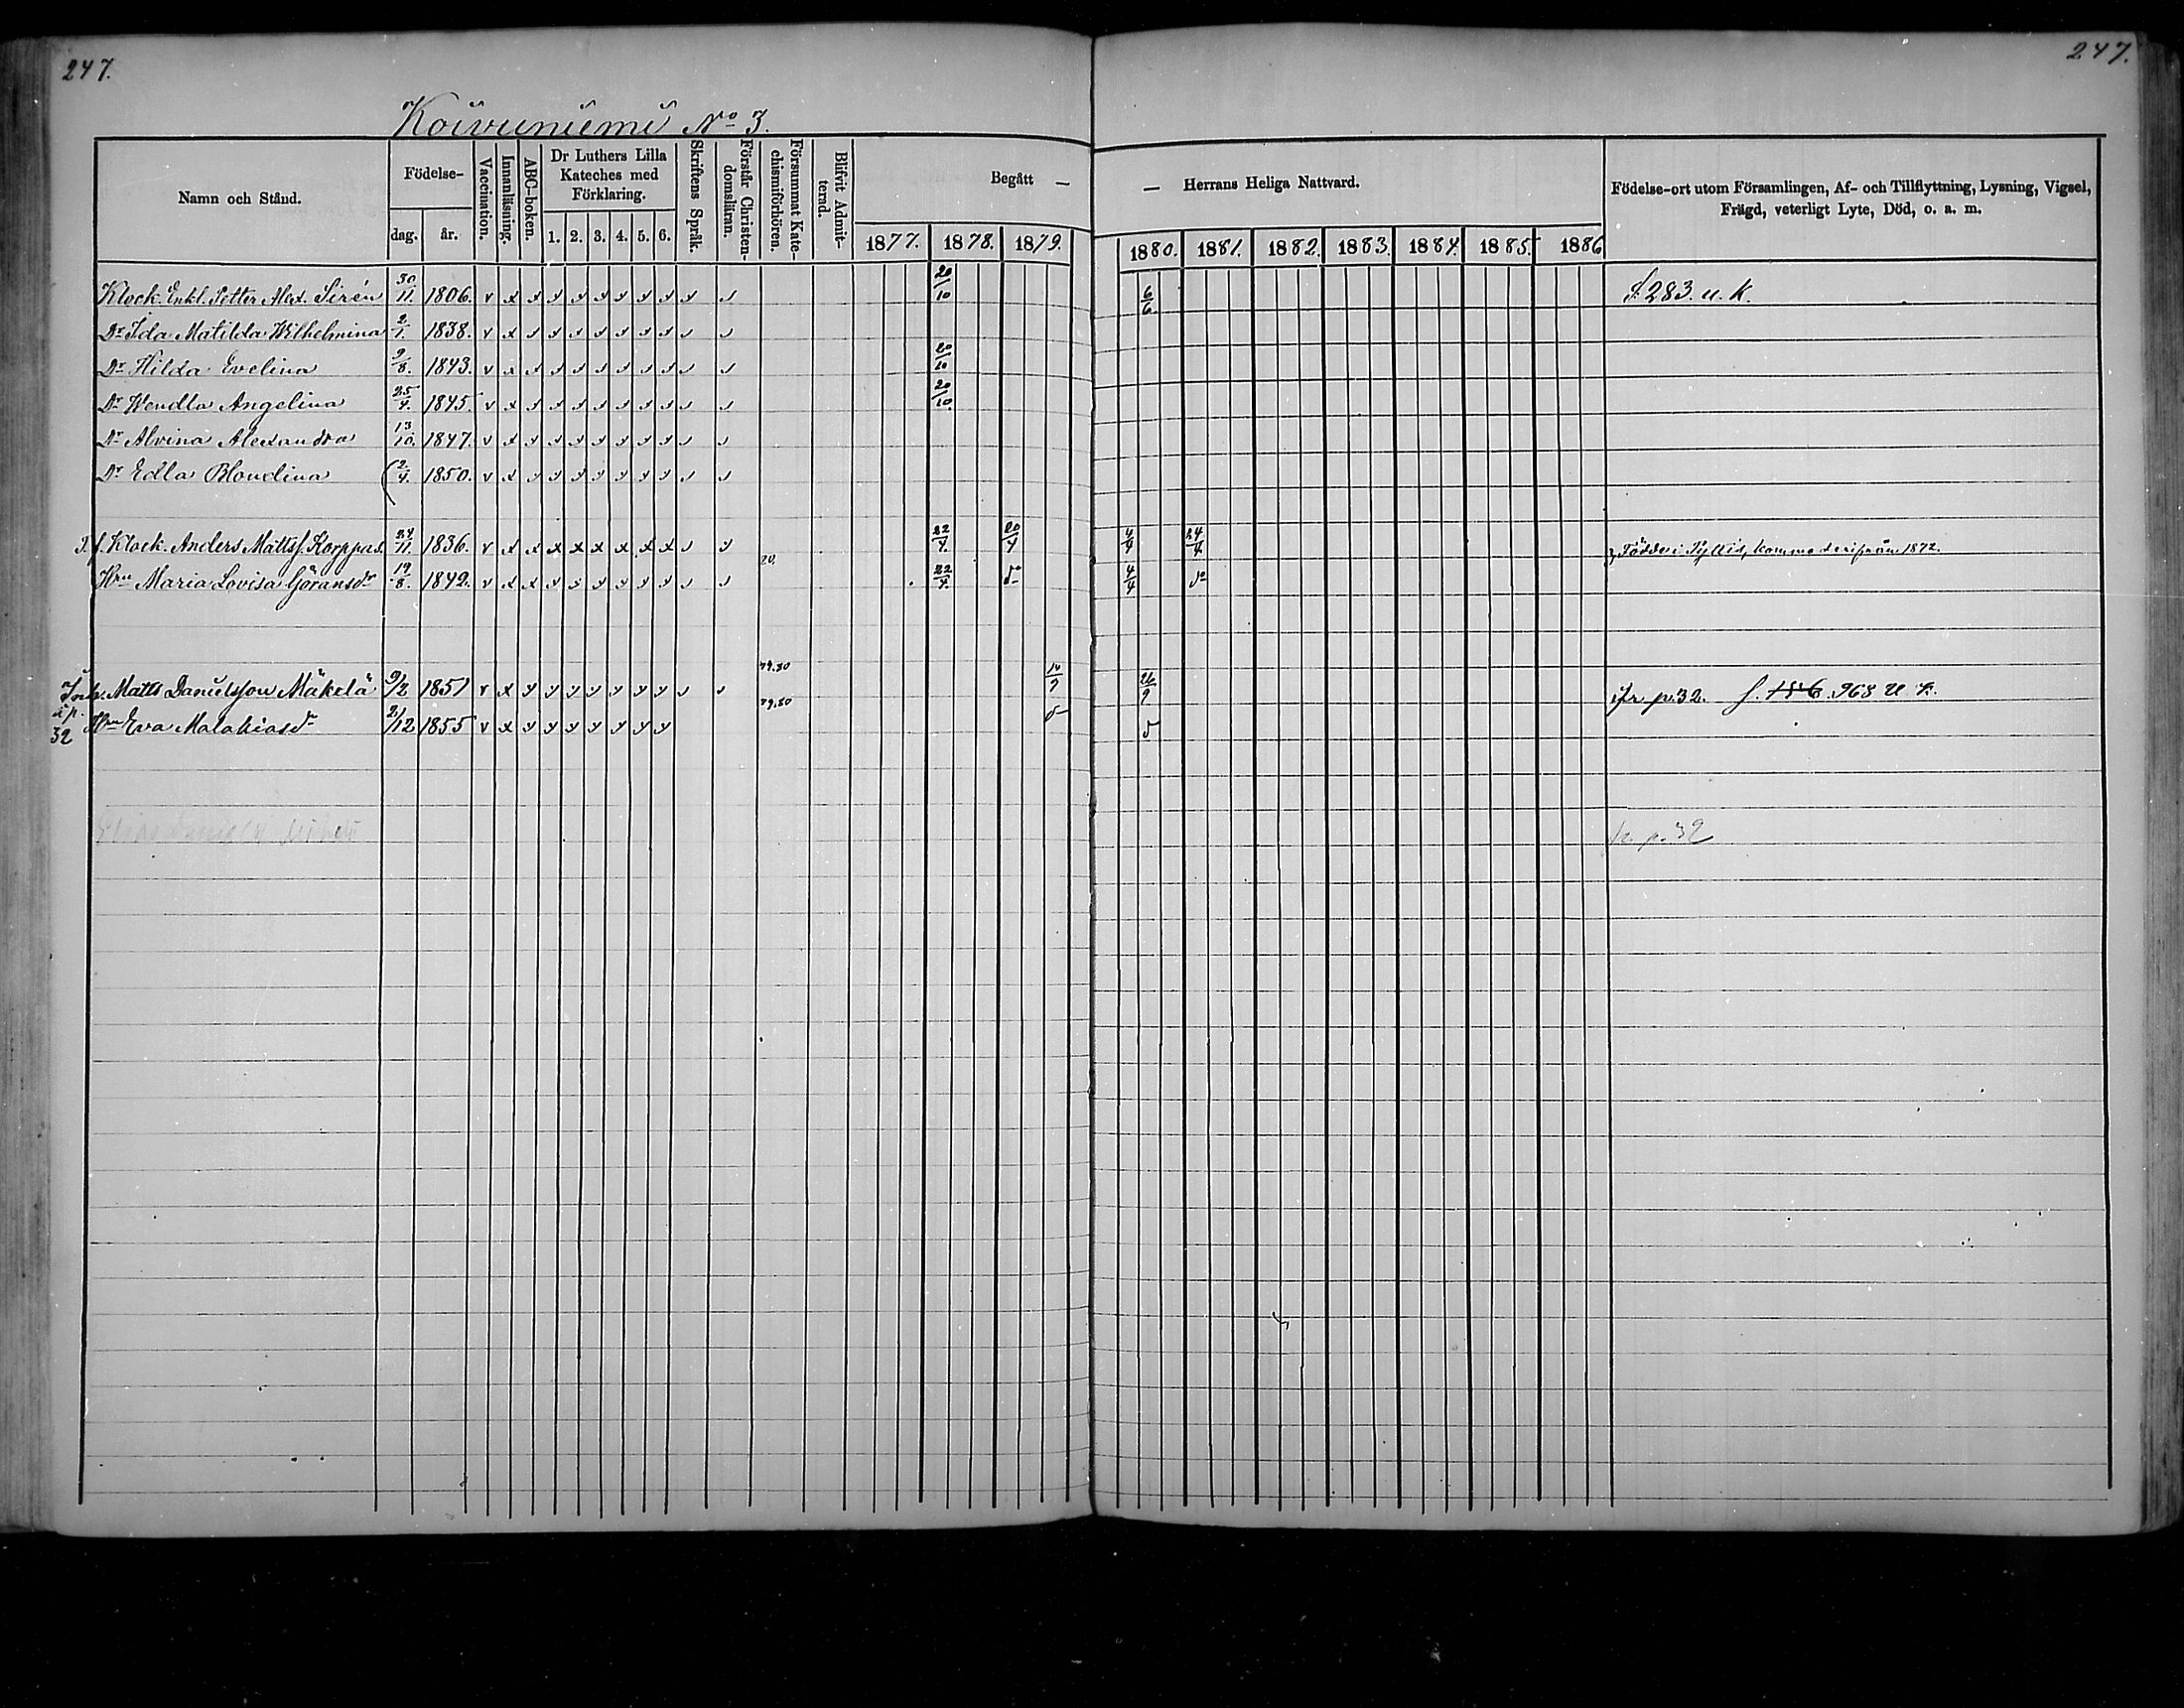 247.
247.
Koivuniemi No 3.
Namn och Stånd.
Födelse-
dag.
år.
Vaccination.
Innanläsning.
ABC-boken.
Dr Luthers Lilla Kateches med Förklaring.
1. 2. 3. 4. 5. 6.
Skriftens Språk.
Förstår Christendomsläran.
Försummat Katechismiförhören.
Blifvit Admitterad.
Begått — — Herrans Heliga Nattvard.
1877. 1878. 1879. 1880. 1881. 1882. 1883. 1884. 1885. 1886
Födelse-ort utom Församlingen, Af- och Tillflyttning, Lysning, Vigsel,
Frägd, veterligt Lyte, Död, o. a. m.
Klock. Enkl. Petter Alex. Sirén 30/11. 1806. v x 20/10 6/6 S. 283. u. k.
Dr Ida Matilda Wilhelmina 2/1. 1838. v x
Dr Hilda Evelina 9/8. 1843. v x 20/10
Dr Wendla Angelina 25/4. 1845. v x 20/10.
Dr Alvina Alexandra 13/10. 1847. v x
Dr Edla Blondina 2/4. 1850. v x
f. Klock. Anders Mattsf. Korppas. 24/11. 1836. v x x x x x x x x 22/4. 20/4 4/4 24/4 Födde i Pyttis, komme derifrån 1872.
Hru Maria Lovisa Göransdr 19/8. 1842. v x x 20. 22/4. do 4/4 do
Inh. Matts Danielsson Mäkelä 9/2 1851 v x 79.80 14/9 26/9 ifr p. 32. f. 968 u k.
i p. 32
Hru Eva Malakiasdr 2/12 1855 v x 79.80
fr. p. 32